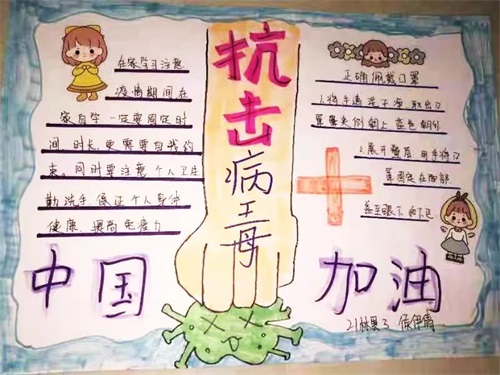 抗击
病王毒
在家学习注意
疫情期间在
家自学一定要固定时
间 时长 更需要自我约
束。同时要注意个人卫生
勤洗手 保证个人身体
健康 提高免疫力
正确佩戴口罩
1.将手清洗干净 取出口
罩鼻夹侧朝上 蓝色朝外
2.展开 用手将口
罩固定在
至眼下和下巴
中国
加油
21林果3